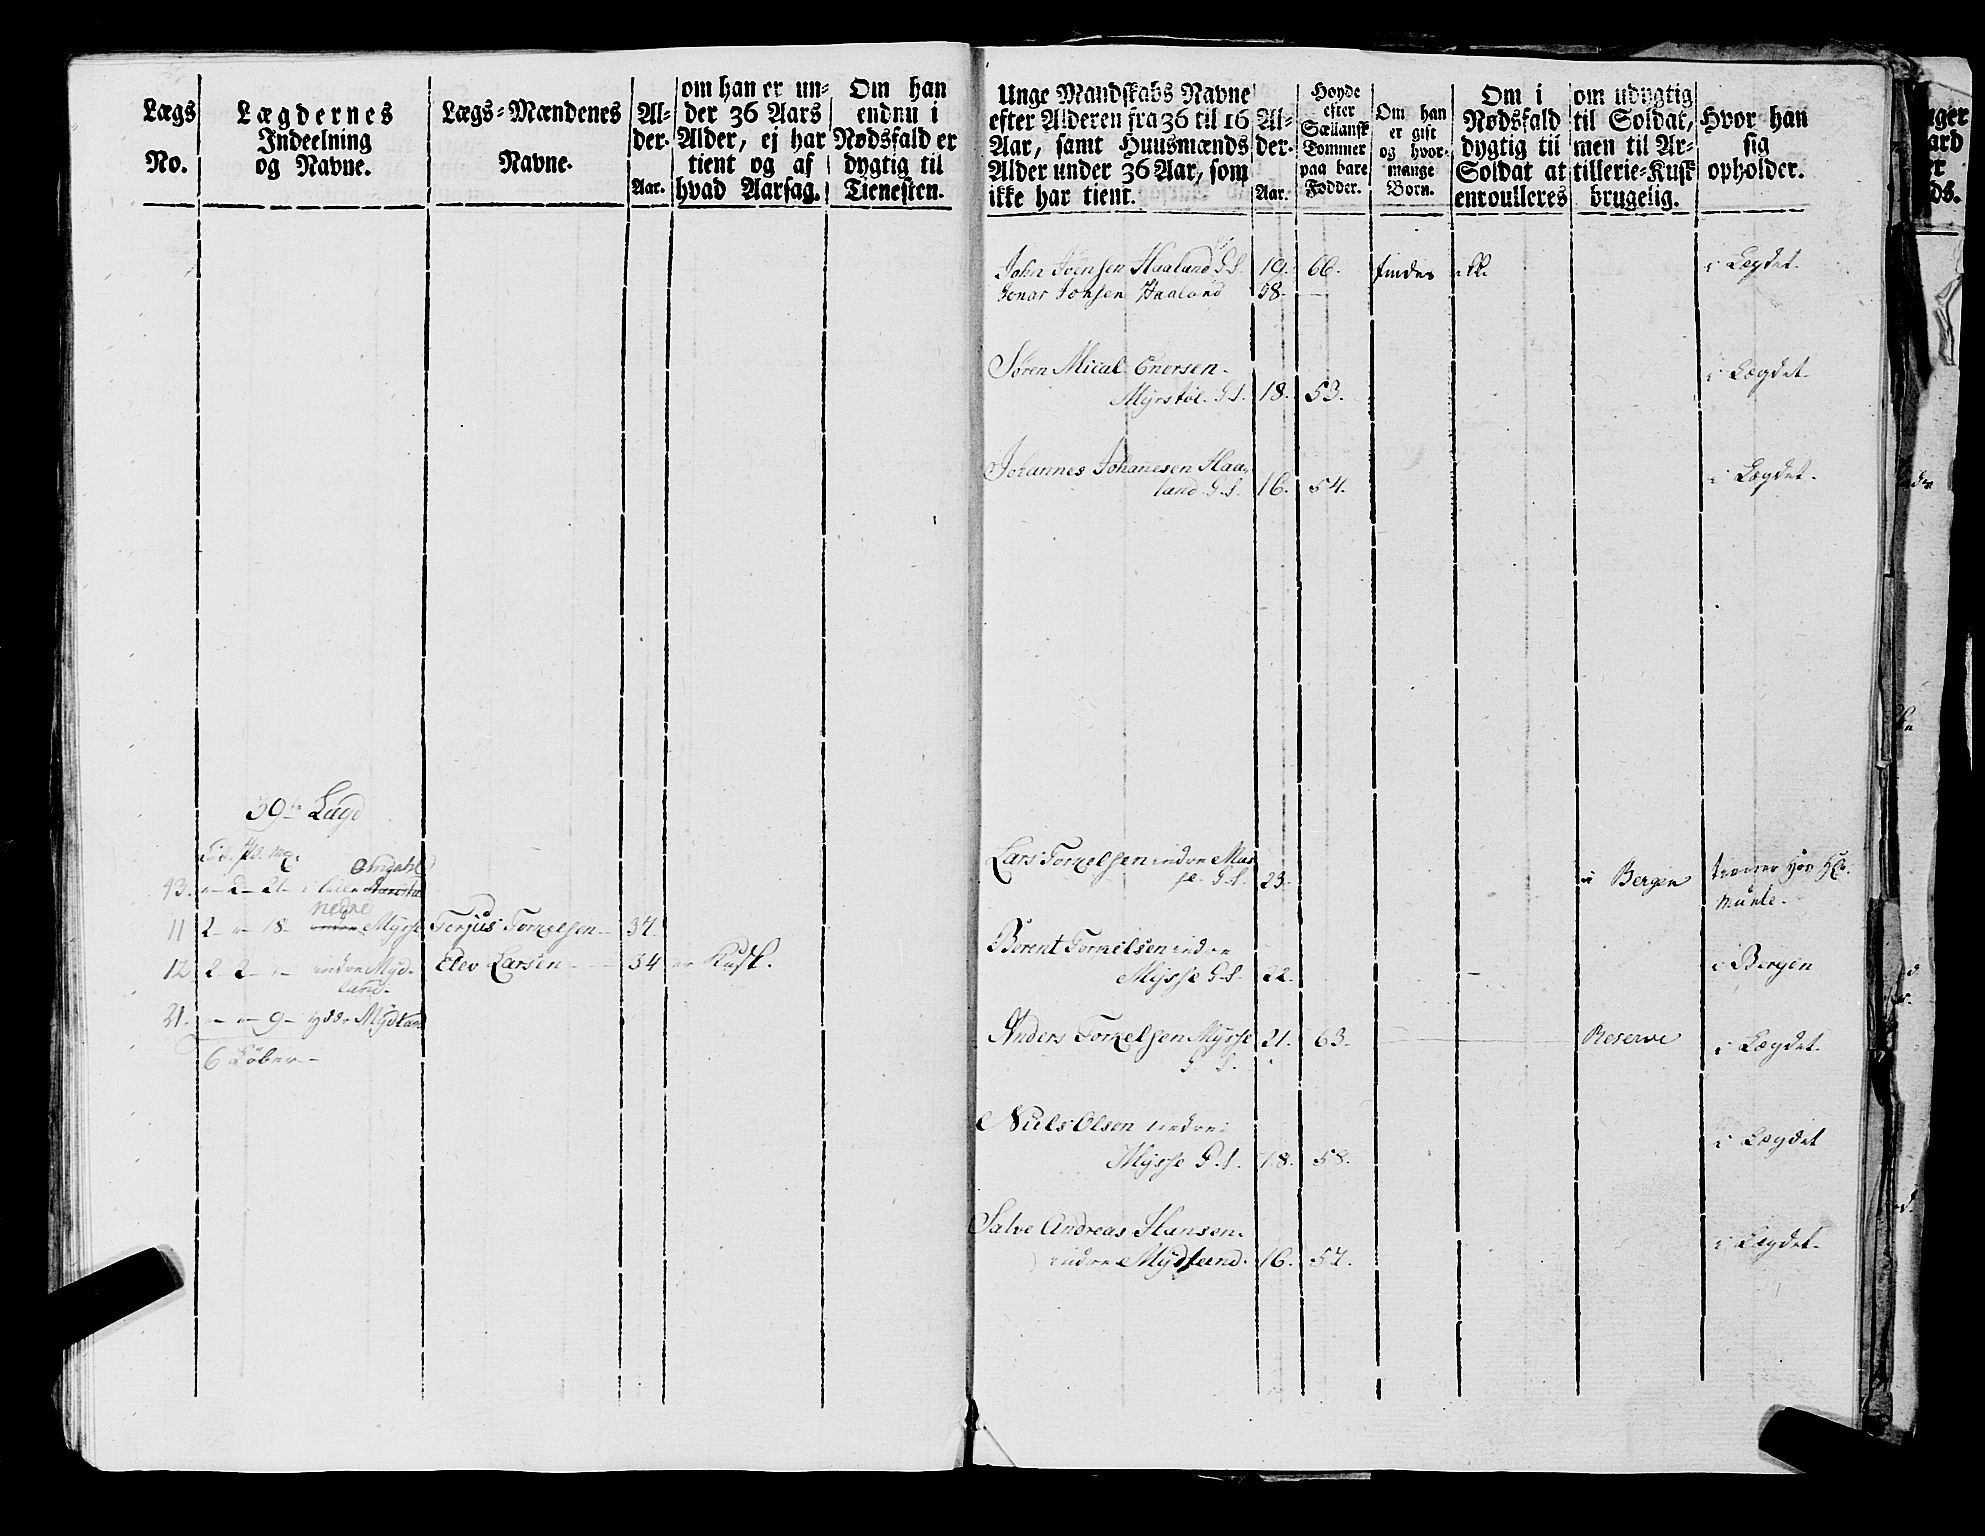 Lægs
No.
Lægdernes
Indeelning
og Navne.
Lægs-Mændenes
Navne.
Al-
der.
Aar.
om han er un-
der 36 Aars
Alder, ej har
tient og af
hvad Aarsag.
Om han
endnu i
Nødsfald er
dygtig til
Tienesten.
39te Lægd
Omdahl
43. lille
nedre
11 2 18 Mysse Terjus Tormelsen 34.
12 2 2 indre Myd- Elev Larsen 54 er Kusk.
land.
21. 9 ydre Mydlan
6 Løber
Unge Mandskabs Navne
efter Alderen fra 36 til 16
Aar, samt Huusmænds
Alder under 36 Aar, som
ikke har tient.
Al-
der.
Aar.
Høyde
efter
Sællansk
Tommer
paa bare
Fødder.
Om han
er gift
og hvor-
mange
Børn.
Om i
Nødsfald
dygtig til
Soldat at
enroulleres
om udygtig
til Soldat,
men til Ar-
tillerie-Kusk
brugelig.
Hvor han
sig
opholder.
John Joensen Haaland G.S. 19. 66. findes ikk. i Lægdet.
Gonar Jonsen Haaland 38.
Søren Mical Enersen
Myrstøl. G.S. 18. 53. i Lægdet.
Johannes Johanesen Haa,
land G.S. 16. 54. i Lægdet.
Lars Tormelsen indre Mys
se G.S. 23. i Bergen tienner Hos
Munte.
Berent Tormelsen indre
Mysse G.S. 22. i Bergen
Anders Tormelsen Mysse 21. 63. Reserve i Lægdet.
G. S.
Niels Olsen indre
Mysse G.S. 18. 58. i Lægdet
Salve Andreas Hansen.
indre Mydland. 16. 57. i Lægdet.